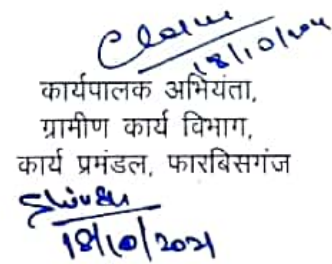 18/10/2021
कार्यपालक अभियंता,
ग्रामीण कार्य विभाग,
कार्य प्रमंडल, फारबिसगंज
18/10/2021